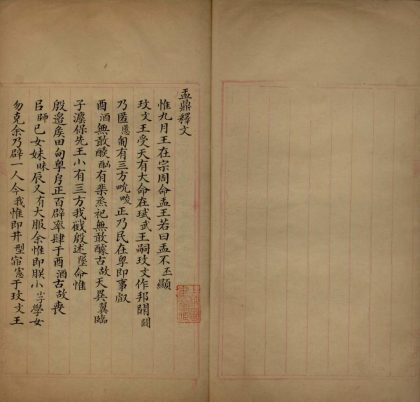 盂鼎釋文
惟九月王在宗周命盂王若曰盂不丕顯
玟文王受天有大命在珷武王嗣玟文作邦闢闢
乃匿慝匍有三方畯正乃民在粤即事
酉酒無敢有祡蒸祀無敢古故天異翼臨
子灋保先王有三方我殷述墜命惟
殷邊侯田甸粤正百辟率肆于酉酒古故喪
師已女妹昧辰又有大服余惟即朕小學女
勿克余乃辟一人今我惟即井型于玟文王